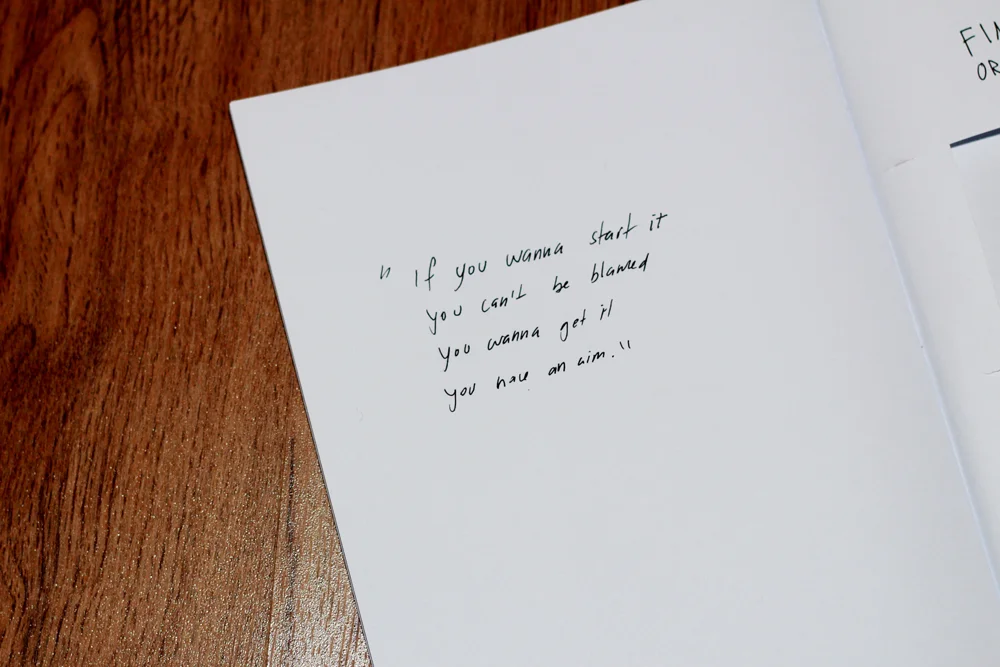 " If you wanna start it
you can't be blamed
you wanna get it
you have an aim."
FIN
OR